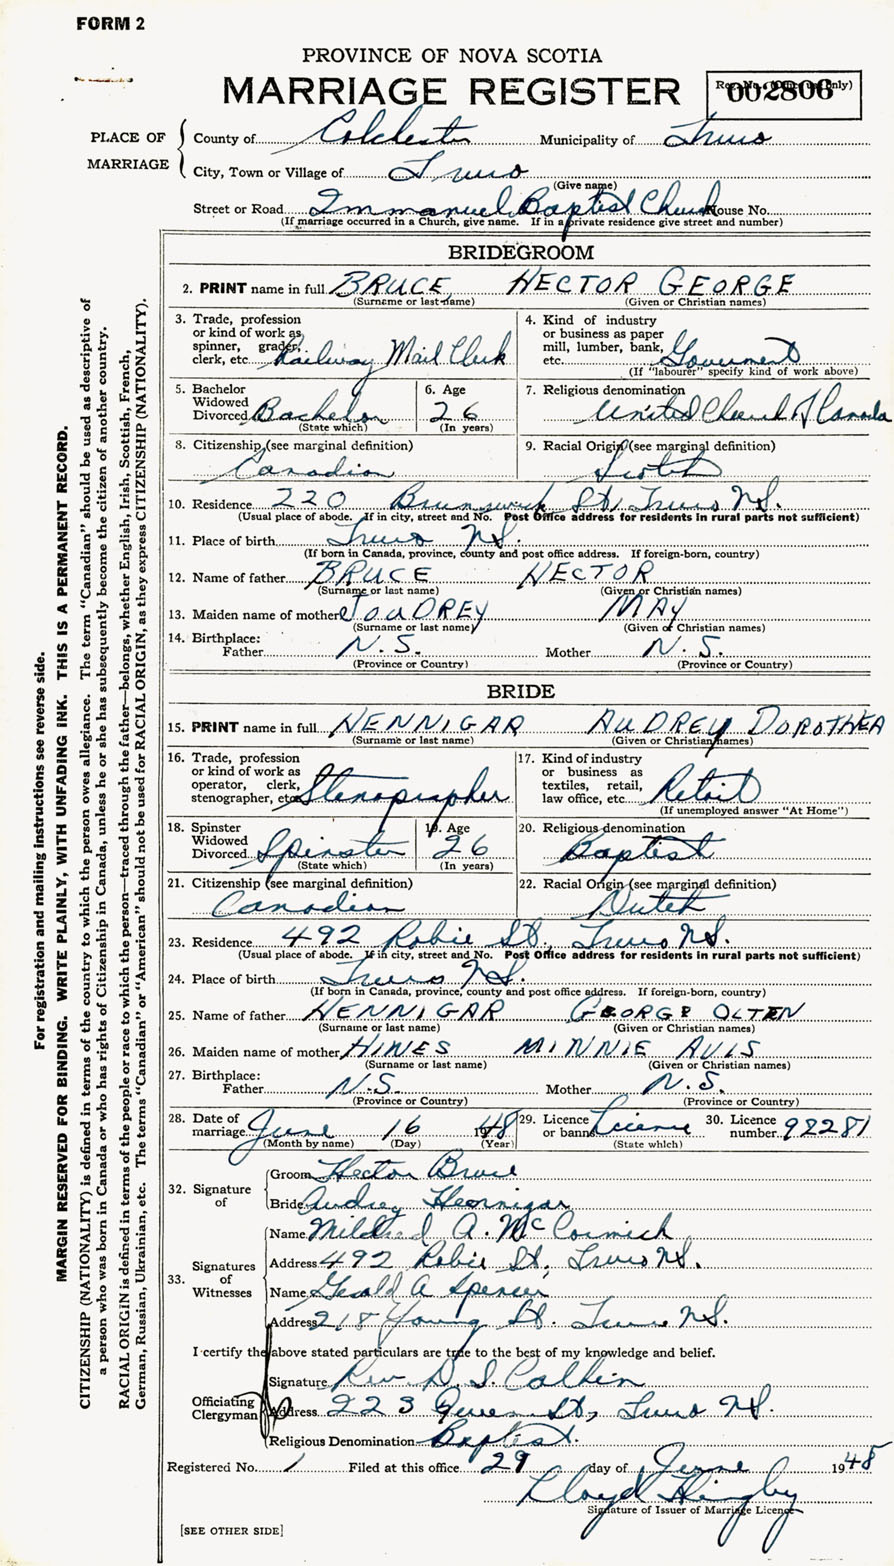 FORM 2
PROVINCE OF NOVA SCOTIA
MARRIAGE REGISTER
Reg. No. (Office use only)
002806
PLACE OF MARRIAGE
County of Colchester Municipality of Truro
City, Town or Village of Truro
(Give name)
Street or Road Immanuel Baptist Church House No.
(If marriage occurred in a Church, give name. If in a private residence give street and number)
BRIDEGROOM
2. PRINT name in full BRUCE HECTOR GEORGE
(Surname or last name) (Given or Christian names)
3. Trade, profession or kind of work as spinner, grader, clerk, etc. Railway Mail Clerk
4. Kind of industry or business as paper mill, lumber, bank, etc. Government
(If "labourer" specify kind of work above)
5. Bachelor Widowed Divorced Bachelor
(State which)
6. Age 26
(In years)
7. Religious denomination
United Church of Canada
8. Citizenship (see marginal definition)
Canadian
9. Racial Origin (see marginal definition)
Scotch
10. Residence 220 Brunswick St, Truro N.S.
(Usual place of abode. If in city, street and No. Post Office address for residents in rural parts not sufficient)
11. Place of birth Truro N.S.
(If born in Canada, province, county and post office address. If foreign-born, country)
12. Name of father BRUCE HECTOR
(Surname or last name) (Given or Christian names)
13. Maiden name of mother JOUDREY MAY
(Surname or last name) (Given or Christian names)
14. Birthplace:
Father N.S. Mother N.S.
(Province or Country) (Province or Country)
BRIDE
15. PRINT name in full HENNIGAR AUDREY DOROTHEA
(Surname or last name) (Given or Christian names)
16. Trade, profession or kind of work as operator, clerk, stenographer, etc. Stenographer
17. Kind of industry or business as textiles, retail, law office, etc. Retail
(If unemployed answer "At Home")
18. Spinster Widowed Divorced Spinster
(State which)
19. Age 26
(In years)
20. Religious denomination
Baptist
21. Citizenship (see marginal definition)
Canadian
22. Racial Origin (see marginal definition)
Dutch
23. Residence 492 Robie St, Truro N.S.
(Usual place of abode. If in city, street and No. Post Office address for residents in rural parts not sufficient)
24. Place of birth Truro N.S.
(If born in Canada, province, county and post office address. If foreign-born, country)
25. Name of father HENNIGAR GEORGE OLTEN
(Surname or last name) (Given or Christian names)
26. Maiden name of mother HINES MINNIE AVIS
(Surname or last name) (Given or Christian names)
27. Birthplace:
Father N.S. Mother N.S.
(Province or Country) (Province or Country)
28. Date of marriage June 16 1948
(Month by name) (Day) (Year)
29. Licence or banns License
(State which)
30. Licence number 98281
32. Signature of
Groom Hector Bruce
Bride Audrey Hennigar
33. Signatures of Witnesses
Name Mildred A. McCormick
Address 492 Robie St, Truro N.S.
Name Gerald A Spencer
Address 218 Young St. Truro N.S.
I certify the above stated particulars are true to the best of my knowledge and belief.
Officiating Clergyman
Signature Rev. D. I.
Address 223 Queen St, Truro N.S.
Religious Denomination Baptist.
Registered No. 1 Filed at this office 29 day of June 1948
Lloyd
Signature of Issuer of Marriage Licence
[SEE OTHER SIDE]
For registration and mailing instructions see reverse side.
MARGIN RESERVED FOR BINDING. WRITE PLAINLY, WITH UNFADING INK. THIS IS A PERMANENT RECORD.
CITIZENSHIP (NATIONALITY) is defined in terms of the country to which the person owes allegiance. The term "Canadian" should be used as descriptive of
a person who was born in Canada or who has rights of Citizenship in Canada, unless he or she has subsequently become the citizen of another country.
RACIAL ORIGIN is defined in terms of the people or race to which the person—traced through the father—belongs, whether English, Irish, Scottish, French,
German, Russian, Ukrainian, etc. The terms "Canadian" or "American" should not be used for RACIAL ORIGIN, as they express CITIZENSHIP (NATIONALITY).